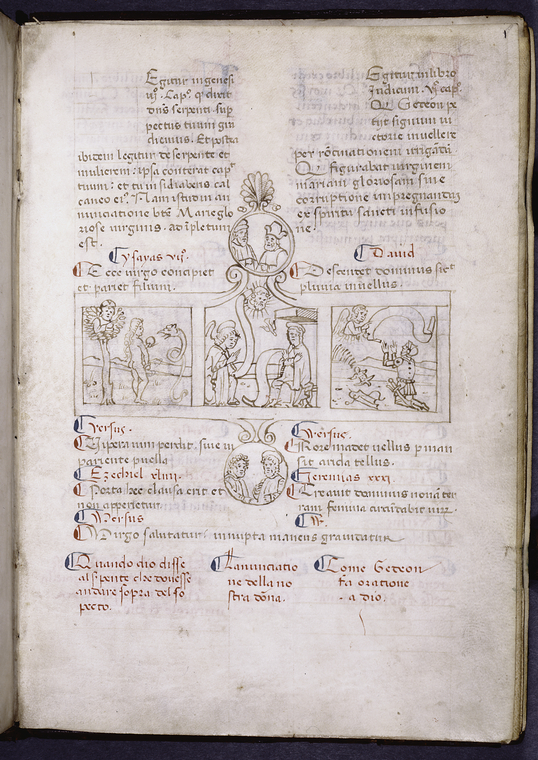 1
Egitur in genesi
iij. Cap. q dixit
dns serpenti sup
pectus tuum gra
dieris. Et postea
ibidem legitur de serpente et
muliere: ipsa conteret cap
tuum: et tu insidiaberis cal
caneo ei.
nunciatione bte Marie glo
riose virginis. adipletum
est.
Egitur in libro
Judicum. vj. cap.
Q Gedeon pe
tiit signum vi
ctorie in vellere
per irrigatum
Q figurabat virginem
mariam gloriosam sine
corruptione impregnandam
ex spiritu sancti infusio
ne.
Ysayas vij.
Ecce virgo concipiet
et pariet filium.
David
Descendet dominus sicut
pluvia in vellus.
Versus.
Vipera vim perdit, sine vi
pariente puella
Ezechiel xliiii.
Porta hec clausa erit et
non aperietur.
Versus
Versus.
Rore madet vellus pman
sit arida tellus.
Geremias xxxi.
Creavit dominus novum ter
ram femina circundabit virum
V.
Virgo salutatur: innupta manens gravidatur
Quando dio disse
al sipente che dovesse
andare sopra del so
pecto.
Lanunciatio
ne della no
stra dona.
Come Gedeon
fa oratione
a dio.